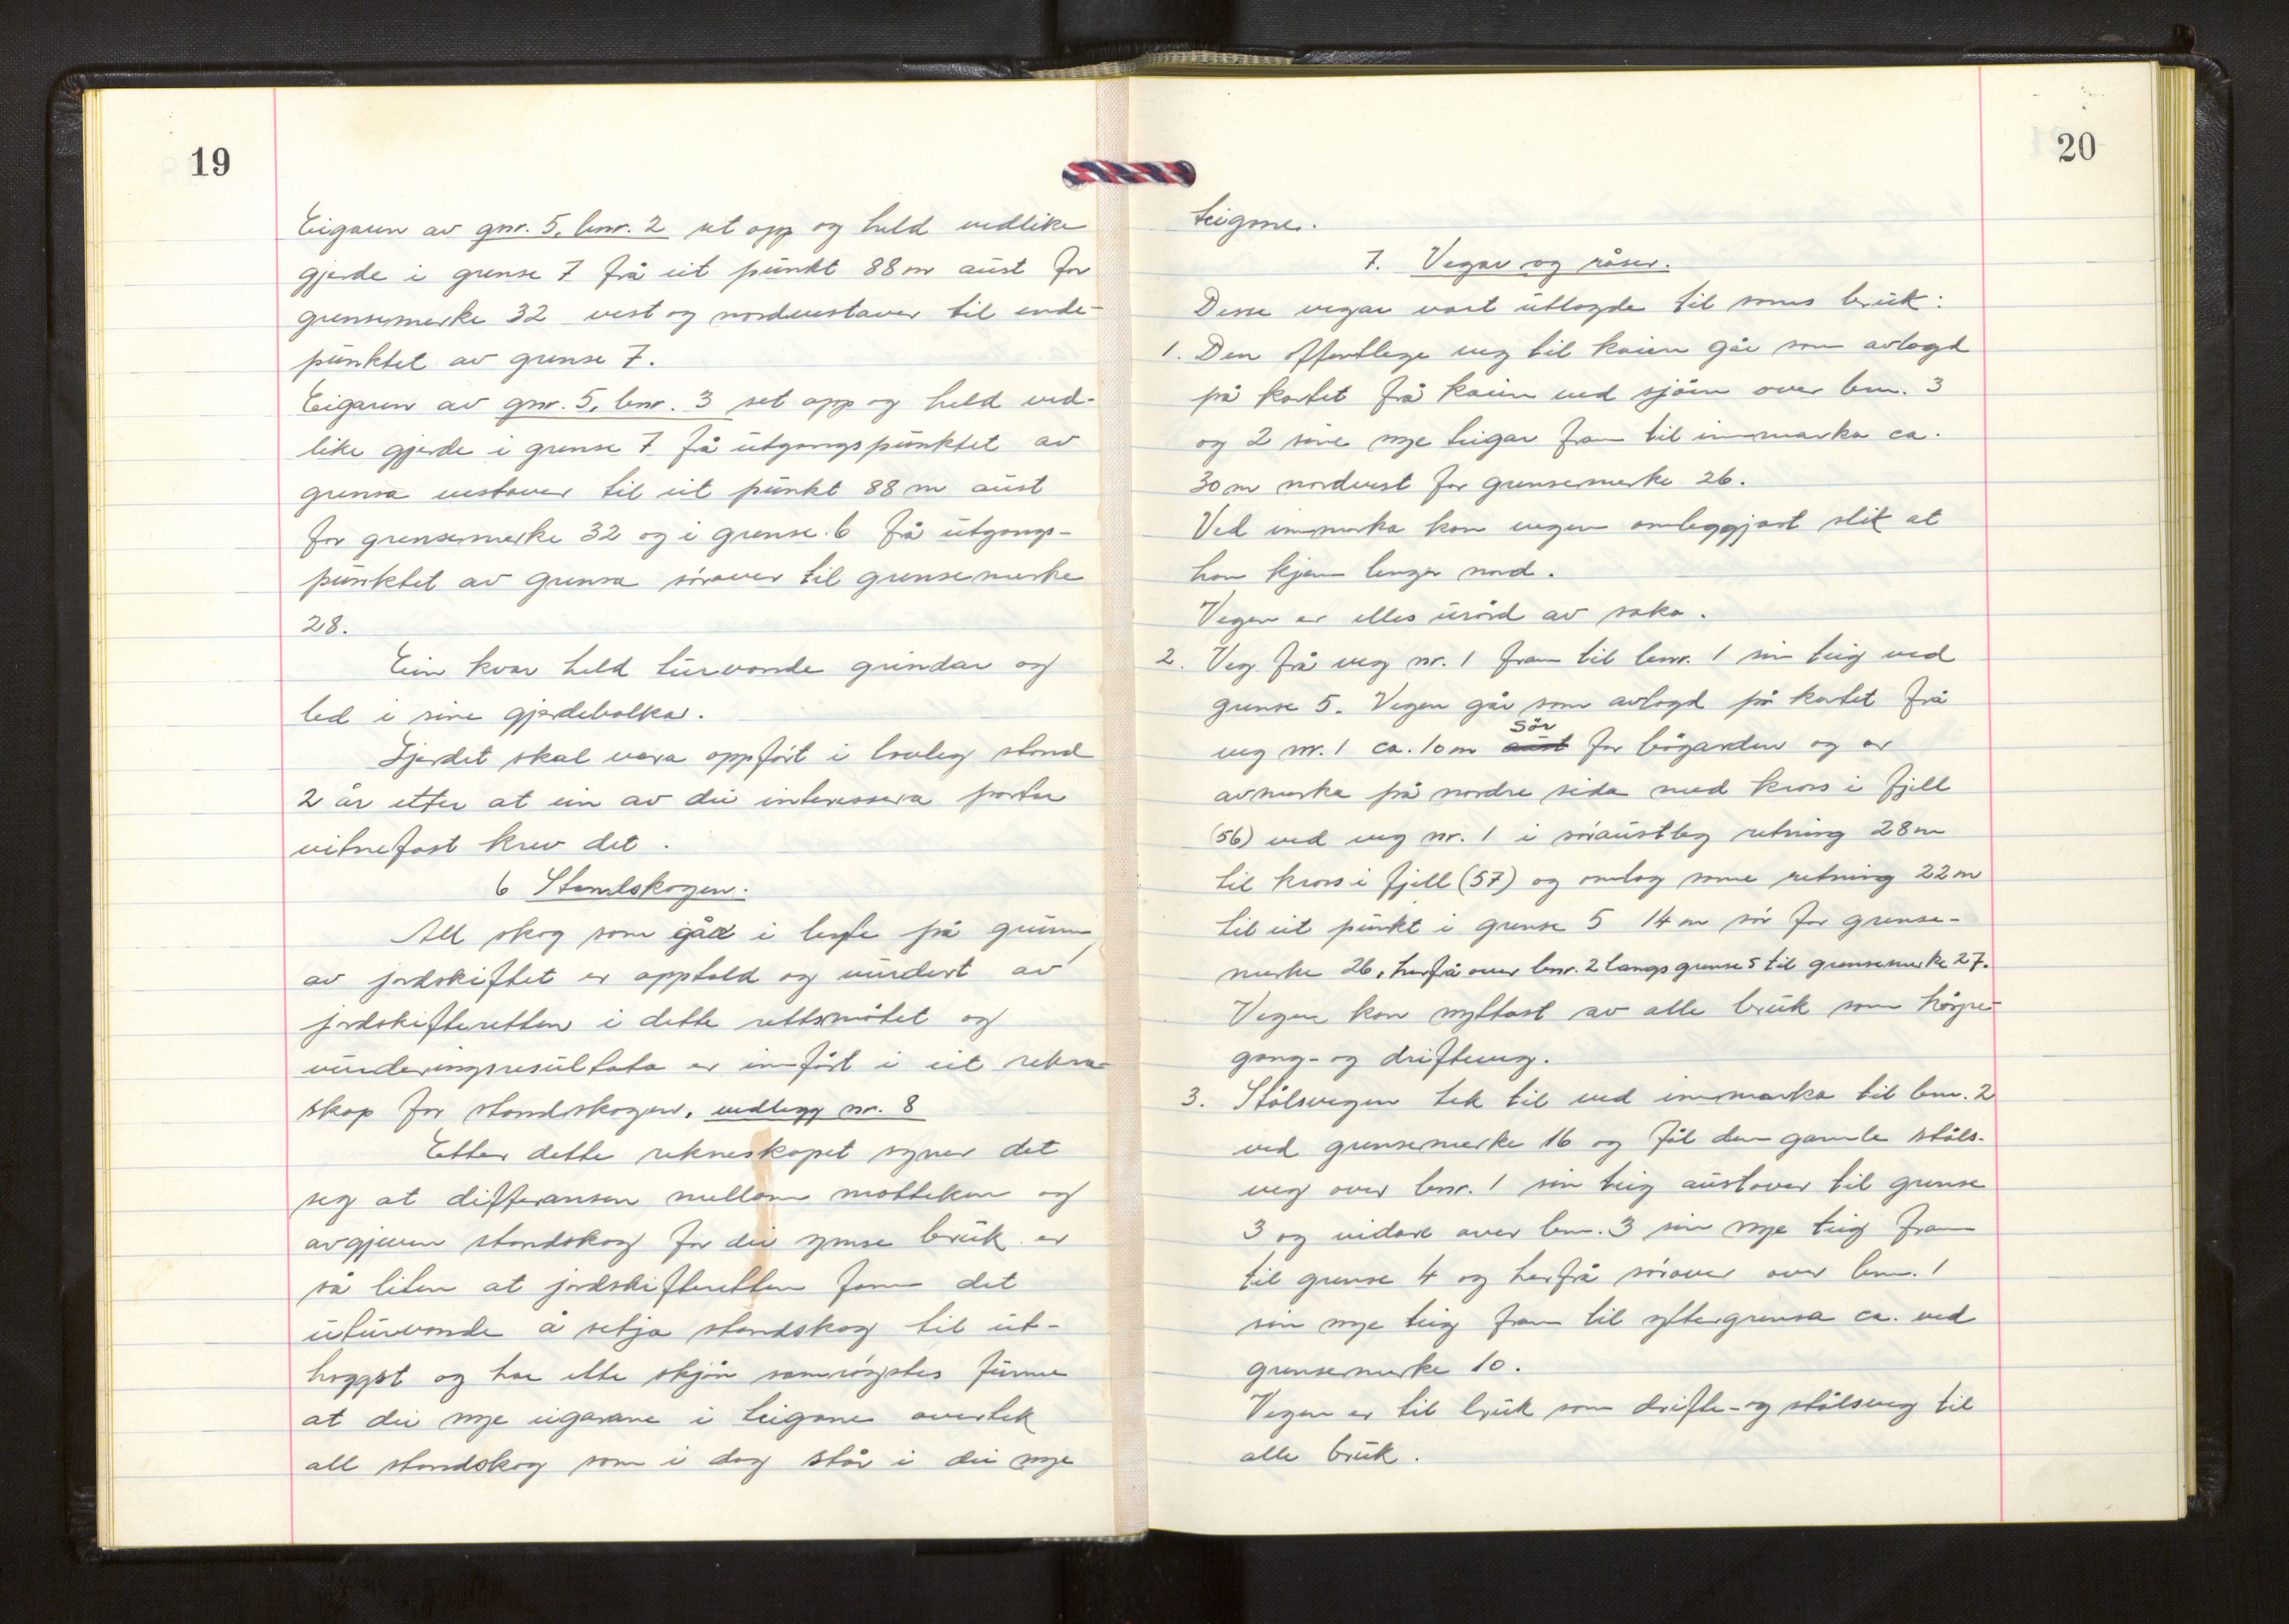 19
Eigaren av gnr. 5, bnr. 2 set opp og held vedlike
gjerde i grense 7 frå eit punkt 88 m aust for
grensemerke 32 vest og nordvestover til ende-
punktet av grense 7.
Eigaren av gnr. 5, bnr. 3 set opp og held ved-
like gjerde i grense 7 frå utgangspunktet av
grensa vestover til eit punkt 88 m aust
for grensemerke 32 og i grense 6 frå utgangs-
punktet av grensa sørover til grensemerke
28.
Ein kvar held turvande grindar og
led i sine gjerdebolkar.
Gjerdet skal vera oppført i lovleg stand
2 år etter at ein av dei interessera partar
vitnefast krev det.
6 Standskogen.
All skog som går i byte på grunn
av jordskiftet er opptald og vurdert av
jordskifteretten i dette rettsmøtet og
vurderingsresultata er innført i eit rekne-
skap for standskogen, vedlegg nr. 8
Etter dette rekneskapet syner det
seg at differansen mellom motteken og
avgjeven standskog for dei ymse bruk er
så liten at jordskifteretten fann det
uturvande å setja standskog til ut-
hoggst og har ette skjøn samrøystes funne
at dei nye eigarane i teigane overtek
all standskog som i dag står i dei nye
20
teigane.
7. Vegar og råser.
Desse vegar vart utlagde til sams bruk:
1. Den offentlege veg til kaien går som avlagd
på kartet frå kaien ved sjøen over bnr. 3
og 2 sine nye teigar fram til innmarka ca.
30 m nordvest for grensemerke 26.
Ved innmarka kan vegen omleggjast slik at
han kjem lenger nord.
Vegen er elles urørd av saka.
2. Veg frå veg nr. 1 fram til bnr. 1 sin teig ved
grense 5. Vegen går som avlagd på kartet frå
veg nr. 1 ca. 10 m aust sør for bøgarden og er
avmerka på nordre sida med kross i fjell
(56) ved veg nr. 1 i søraustleg retning 28 m
til kross i fjell (57) og omlag same retning 22 m
til eit punkt i grense 5 14 m sør for grense-
merke 26, herfrå over bnr. 2 langs grense 5 til grensemerke 27.
Vegen kan nyttast av alle bruk som køyre-
gang- og drifteveg.
3. Stølsvegen tek til ved innmarka til bnr. 2
ved grensemerke 16 og føl den gamle støls-
veg over bnr. 1 sin teig austover til grense
3 og vidare over bnr. 3 sin nye teig fram
til grense 4 og herfrå sørover over bnr. 1
sin nye teig fram til yttergrensa ca. ved
grensemerke 10.
Vegen er til bruk som drifte- og stølsveg til
alle bruk.